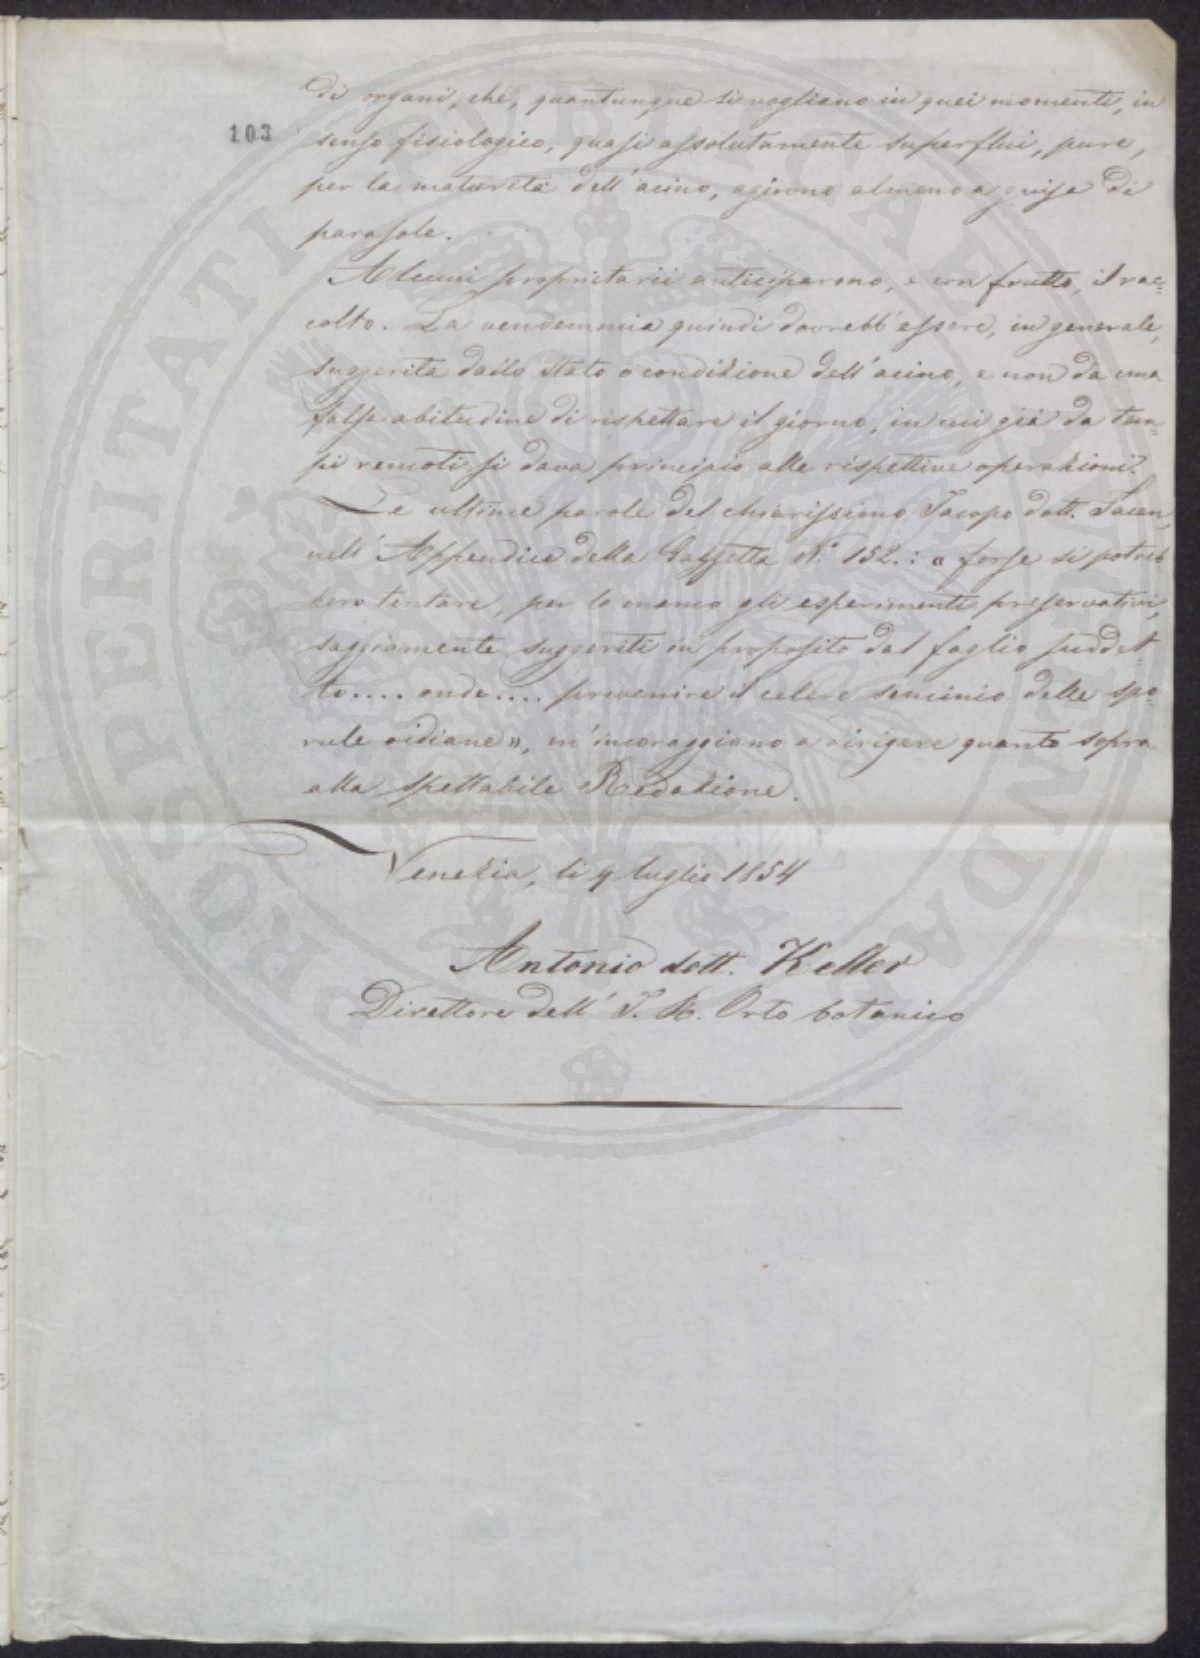 di organi, che, quantunque si vogliano in quei momenti, in
103
senso fisiologico, quasi assolutamente superflui, pure,
per la maturità dell'acino, agirono almeno a guisa di
parasole.
Alcuni proprietarii anticiparono, e con frutto, il rac=
colto. La vendemmia quindi dovrebb'essere, in generale,
suggerita dallo stato o condizione dell'acino, e non da una
falsa abitudine di rispettare il giorno, in cui già da tem=
pi remoti si dava principio alle rispettive operazioni.
Le ultime parole del chiarissimo Jacopo dott.
nell'Appendice della Gazzetta N.° 152.: « forse si potreb
bero tentare, per lo meno gli esperimenti preservativi,
saggiamente suggeriti in proposito dal foglio suddet
to.... onde.... prevenire il celere seminio delle spo
rule oidiane », m'incoraggiano a dirigere quanto sopra
alla spettabile Redazione.
Venezia, li 9 luglio 1854
Antonio dott. Keller
Direttore dell'I. R. Orto botanico
PROSPERITATI PVBLICAE